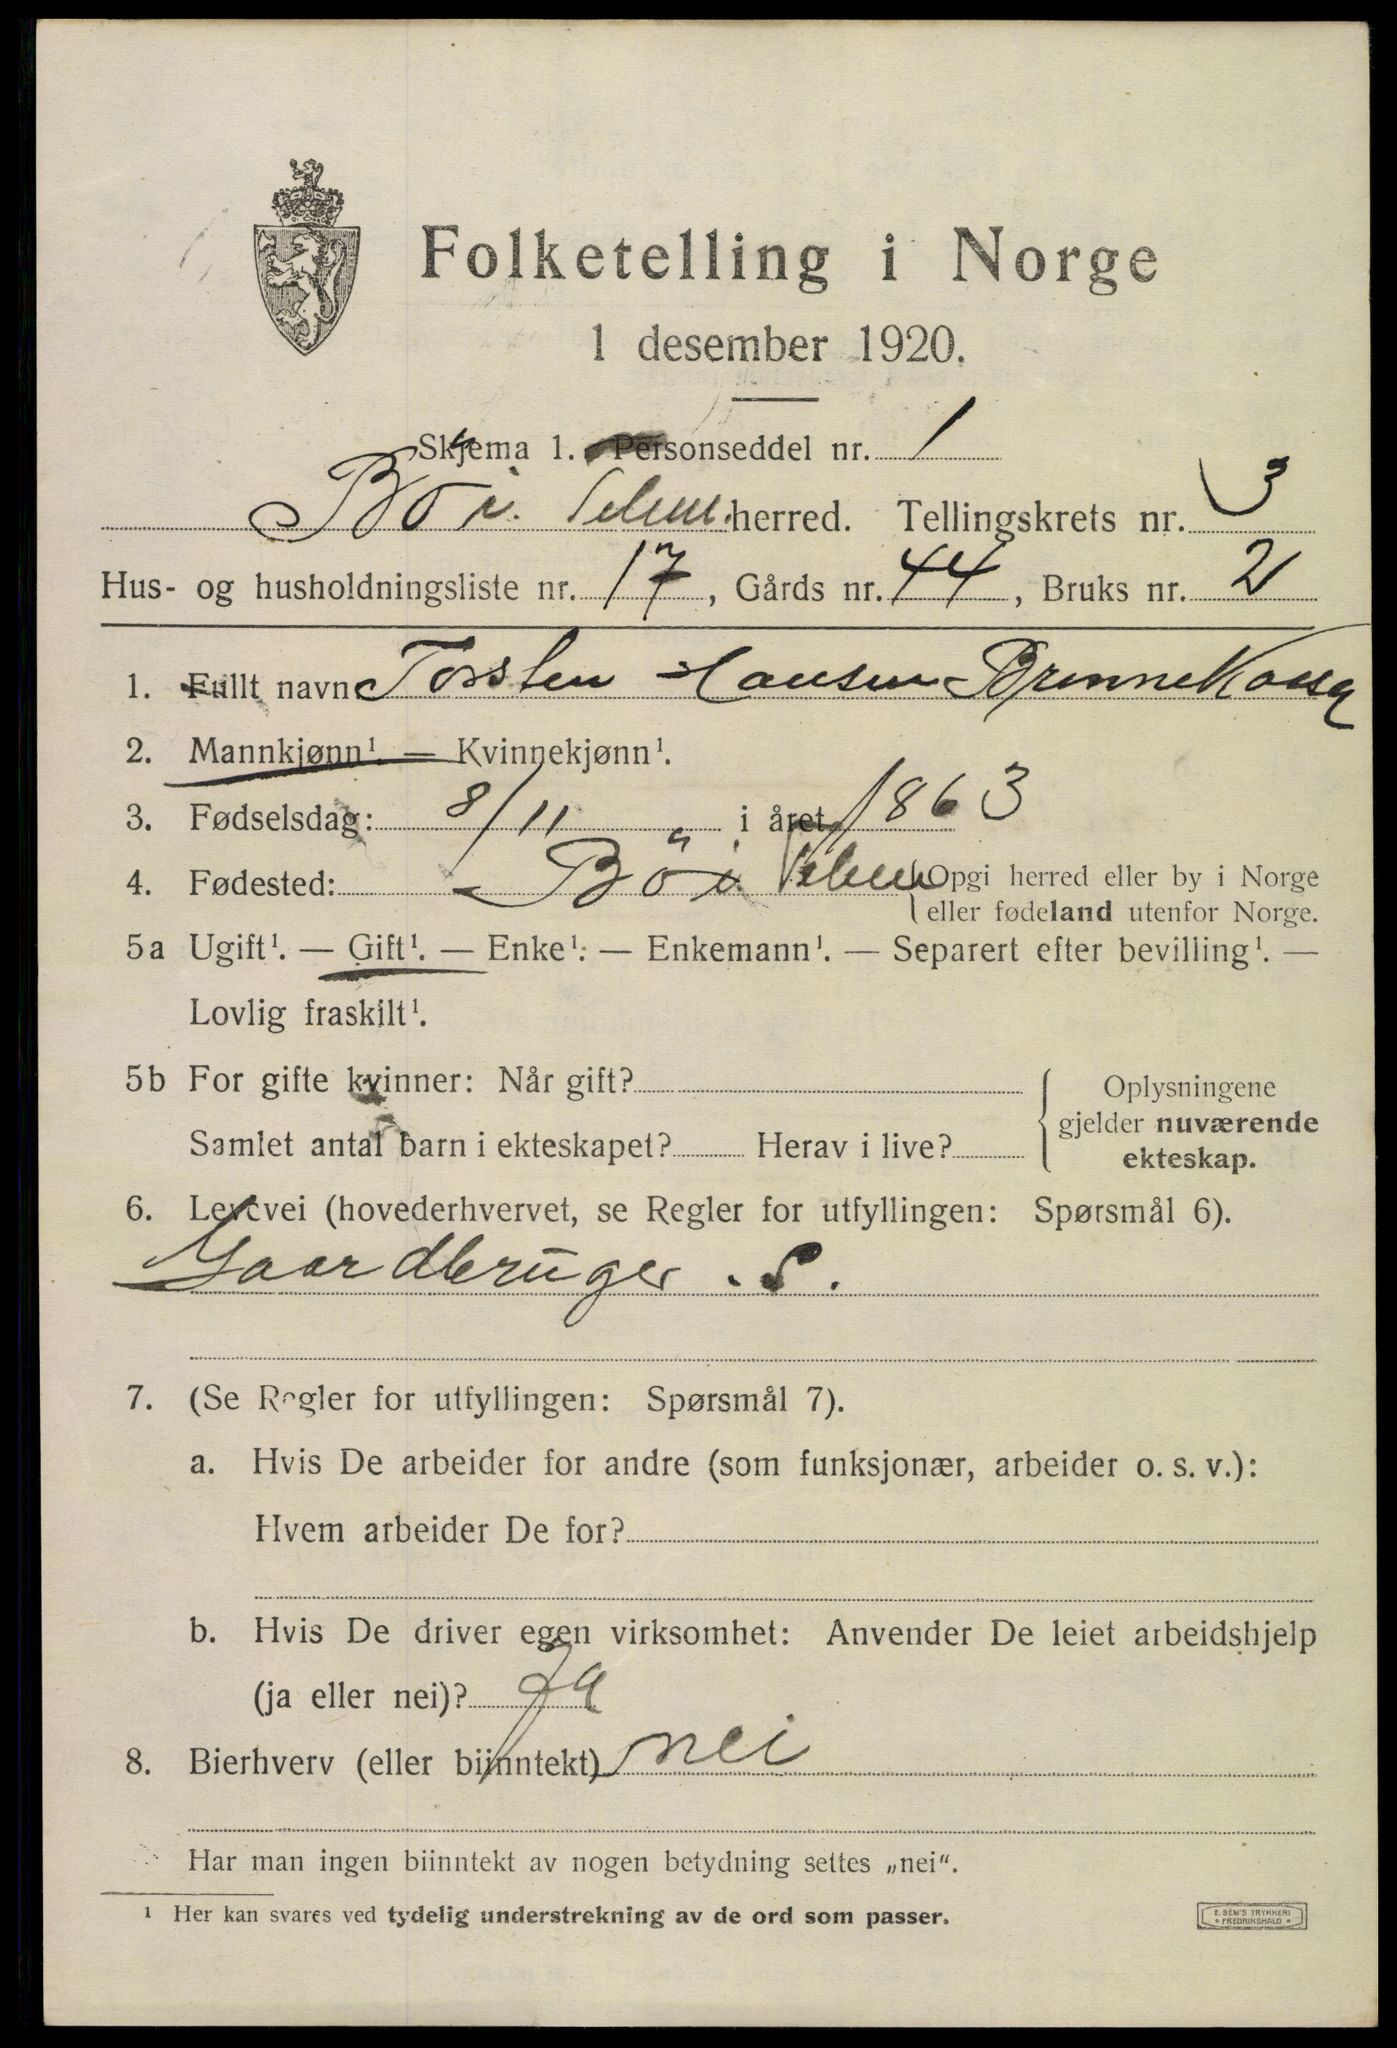 Folketelling i Norge
1 desember 1920.
Skjema 1. Personseddel nr. 1
Bö i Telem. herred. Tellingskrets nr. 3
Hus- og husholdningsliste nr. 17, Gårds nr. 44, Bruks nr. 2
1. Fullt navn Torsten Hansen
2. Mannkjønn¹. — Kvinnekjønn¹.
3. Fødselsdag: 8/11 i året 1863
4. Fødested: Bö i Telem {Opgi herred eller by i Norge
eller fødeland utenfor Norge.
5a Ugift¹. — Gift¹. — Enke¹. — Enkemann¹. — Separert efter bevilling¹. —
Lovlig fraskilt¹.
5b For gifte kvinner: Når gift?
Samlet antal barn i ekteskapet? Herav i live?
Oplysningene
gjelder nuværende
ekteskap.
6. Levevei (hovederhvervet, se Regler for utfyllingen: Spørsmål 6).
Gaardbruger . S.
7. (Se Regler for utfyllingen: Spørsmål 7).
a. Hvis De arbeider for andre (som funksjonær, arbeider o. s. v.):
Hvem arbeider De for?
b. Hvis De driver egen virksomhet: Anvender De leiet arbeidshjelp
(ja eller nei)? Ja
8. Bierhverv (eller biinntekt) nei
Har man ingen biinntekt av nogen betydning settes „nei“.
¹ Her kan svares ved tydelig understrekning av de ord som passer.
E. SEM'S TRYKKERI
FREDRIKSHALD